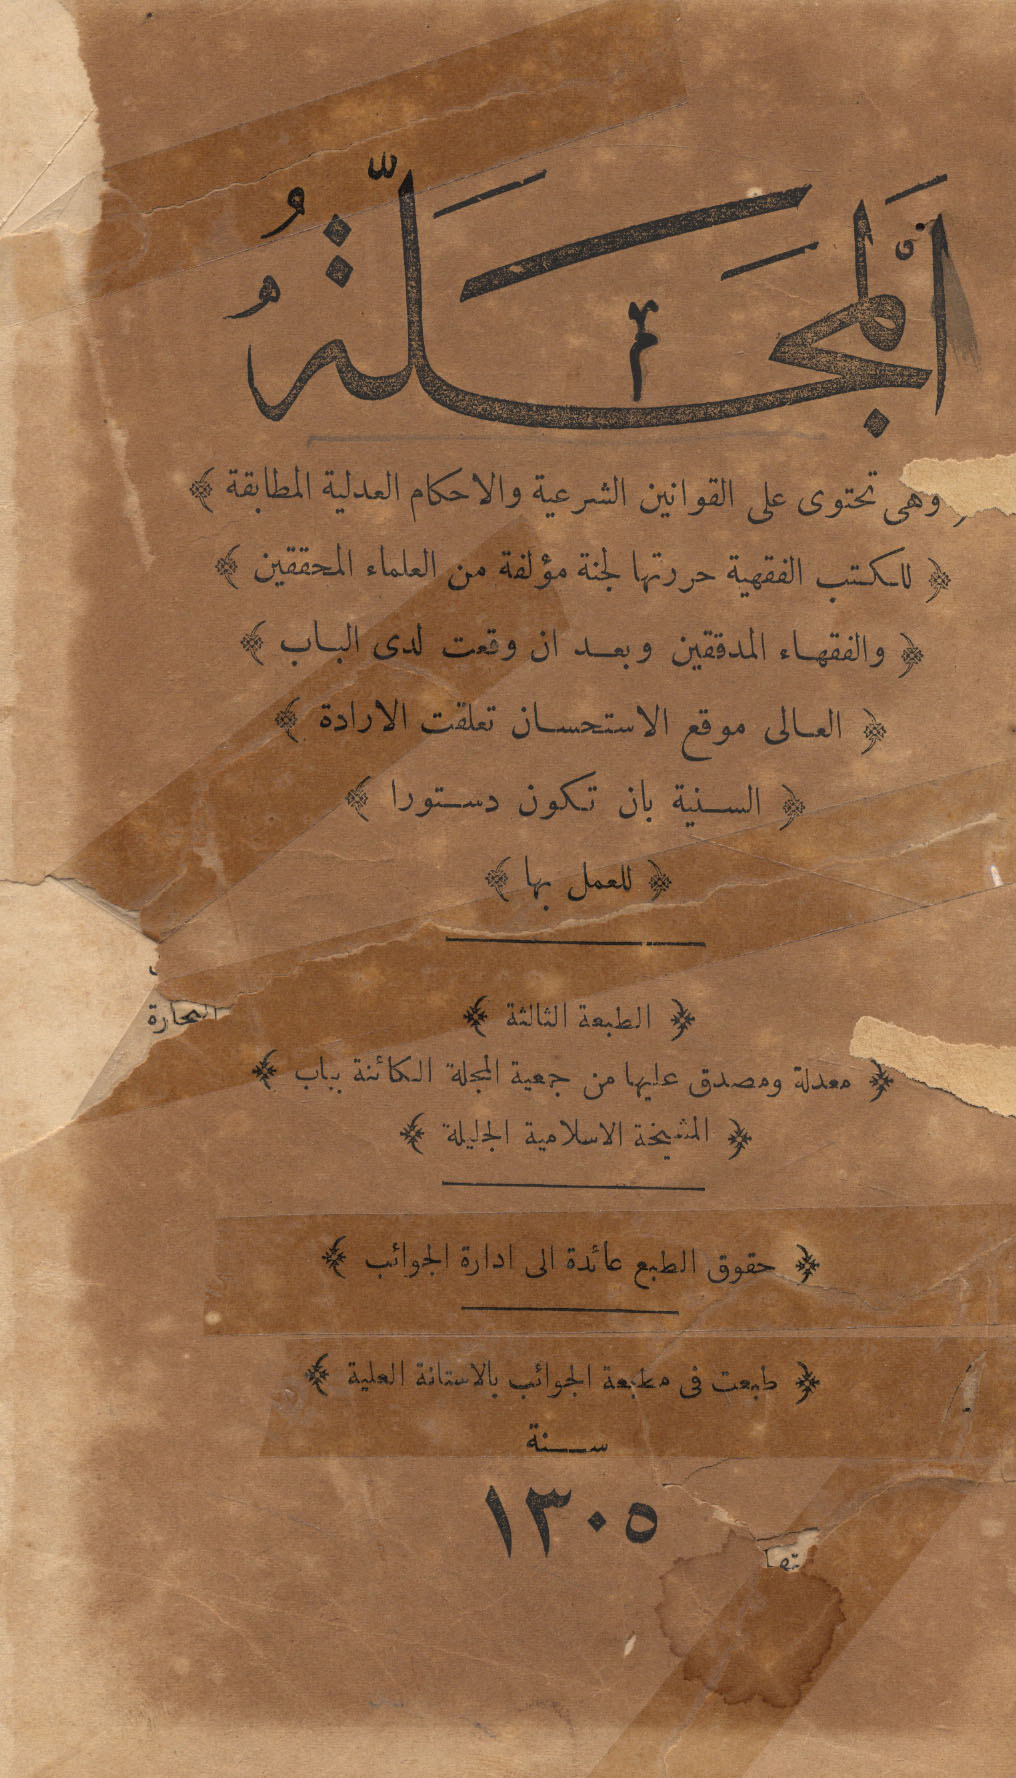 اَلمَجَلَّةُ
وهى تحتوى على القوانين الشرعية والاحكام العدلية المطابقة ﴾
﴿ للكتب الفقهية حررتها لجنة مؤلفة من العلماء المحققين ﴾
﴿ والفقهاء المدققين وبعد ان وقعت لدى الباب ﴾
﴿ العالى موقع الاستحسان تعلقت الارادة ﴾
﴿ السنية بان تكون دستورا ﴾
﴿ للعمل بها ﴾
﴿ الطبعة الثالثة ﴾
﴿ معدلة ومصدق عليها من جمعية المجلة الكائنة بباب ﴾
﴿ المشيخة الاسلامية الجليلة ﴾
﴿ حقوق الطبع عائدة الى ادارة الجوائب ﴾
﴿ طبعت فى مطبعة الجوائب بالاستانة العلية ﴾
سنة
١٣٠٥